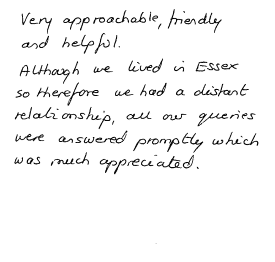 Very approachable, friendly
and helpful.
Although we lived in Essex
so therefore we had a distant
relationship, all our queries
were answered promptly which
was much appreciated.